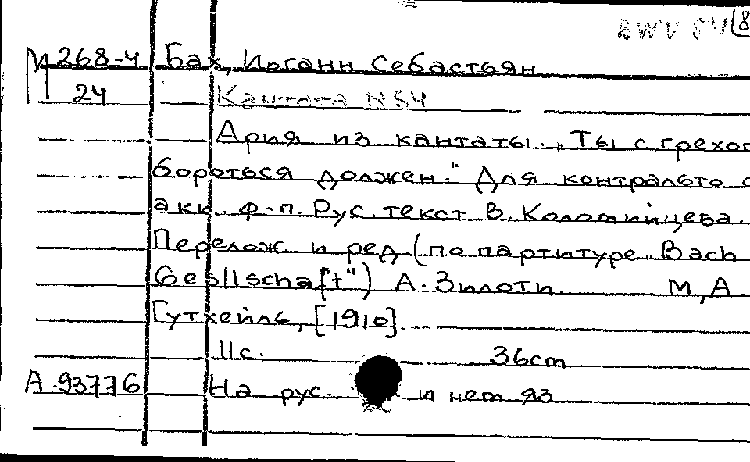 BWV 54 (8
М 268-4 Бах, Иоганн Себастьян
24 Кантата N54
Ария из кантаты „Ты с грехом
бороться должен." Для контральто с
акк. ф-п. Рус. текст В. Коломийцева.
Перелож. и ред. (по партитуре „Bach
Gesellschaft") А. Зилоти. М, А
Гутхейль, [1910].
11с. 36cm
А 93776 На рус. и нем яз